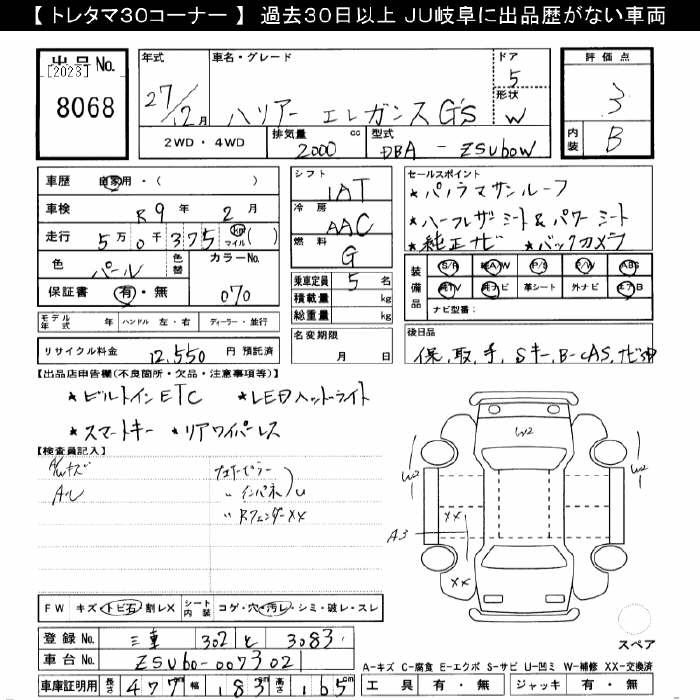 【トレタマ30コーナー】 過去30日以上 JU岐阜に出品歴がない車両
出品No. [2023] 8068
年式 27/12月
車名・グレード ハリアー エレガンス G'S
ドア 5
形状 W
評価点 3
内装 B
2WD・4WD
排気量 2000 cc
型式 DBA - ZSU60W
車歴 自家用・( )
車検 R9年 2月
走行 5万0千375 km マイル ( )
色 パール 色替
カラーNo. 070
保証書 有・無
シフト IAT
冷房 AAC
燃料 G
乗車定員 5 名
積載量 kg
総重量 kg
名変期限 月 日
セールスポイント
★パノラマサンルーフ
★ハーフレザーシート & パワーシート
★純正ナビ ★バックカメラ
装備品 S/R 純A/W P/S P/W ABS
純TV 純ナビ 革シート 外ナビ エアB
ナビ型番:
モデル年式 年 ハンドル 左・右 ディーラー・並行
リサイクル料金 12,550 円 預託済
後日品
保、取、手、Sキー、B-CAS、ナビ
【出品店申告欄(不良箇所・欠品・注意事項等)】
★ビルトインETC ★LEDヘッドライト
★スマートキー ★リアワイパーレス
【検査員記入】
インパネ
Rフェンダー XX
W2
W2
W2
XX
A3
XX
FW キズ・トビ石・割レX
シート内装 コゲ・穴・汚レ・シミ・破レ・スレ
スペア
登録No. 三重 302 と 3083
車台No. ZSU60-0073021
A-キズ C-腐食 E-エクボ S-サビ U-凹ミ W-補修 XX-交換済
車庫証明用 長さ 477 cm 幅 183 cm 高さ 165 cm
工具 有・無 ジャッキ 有・無